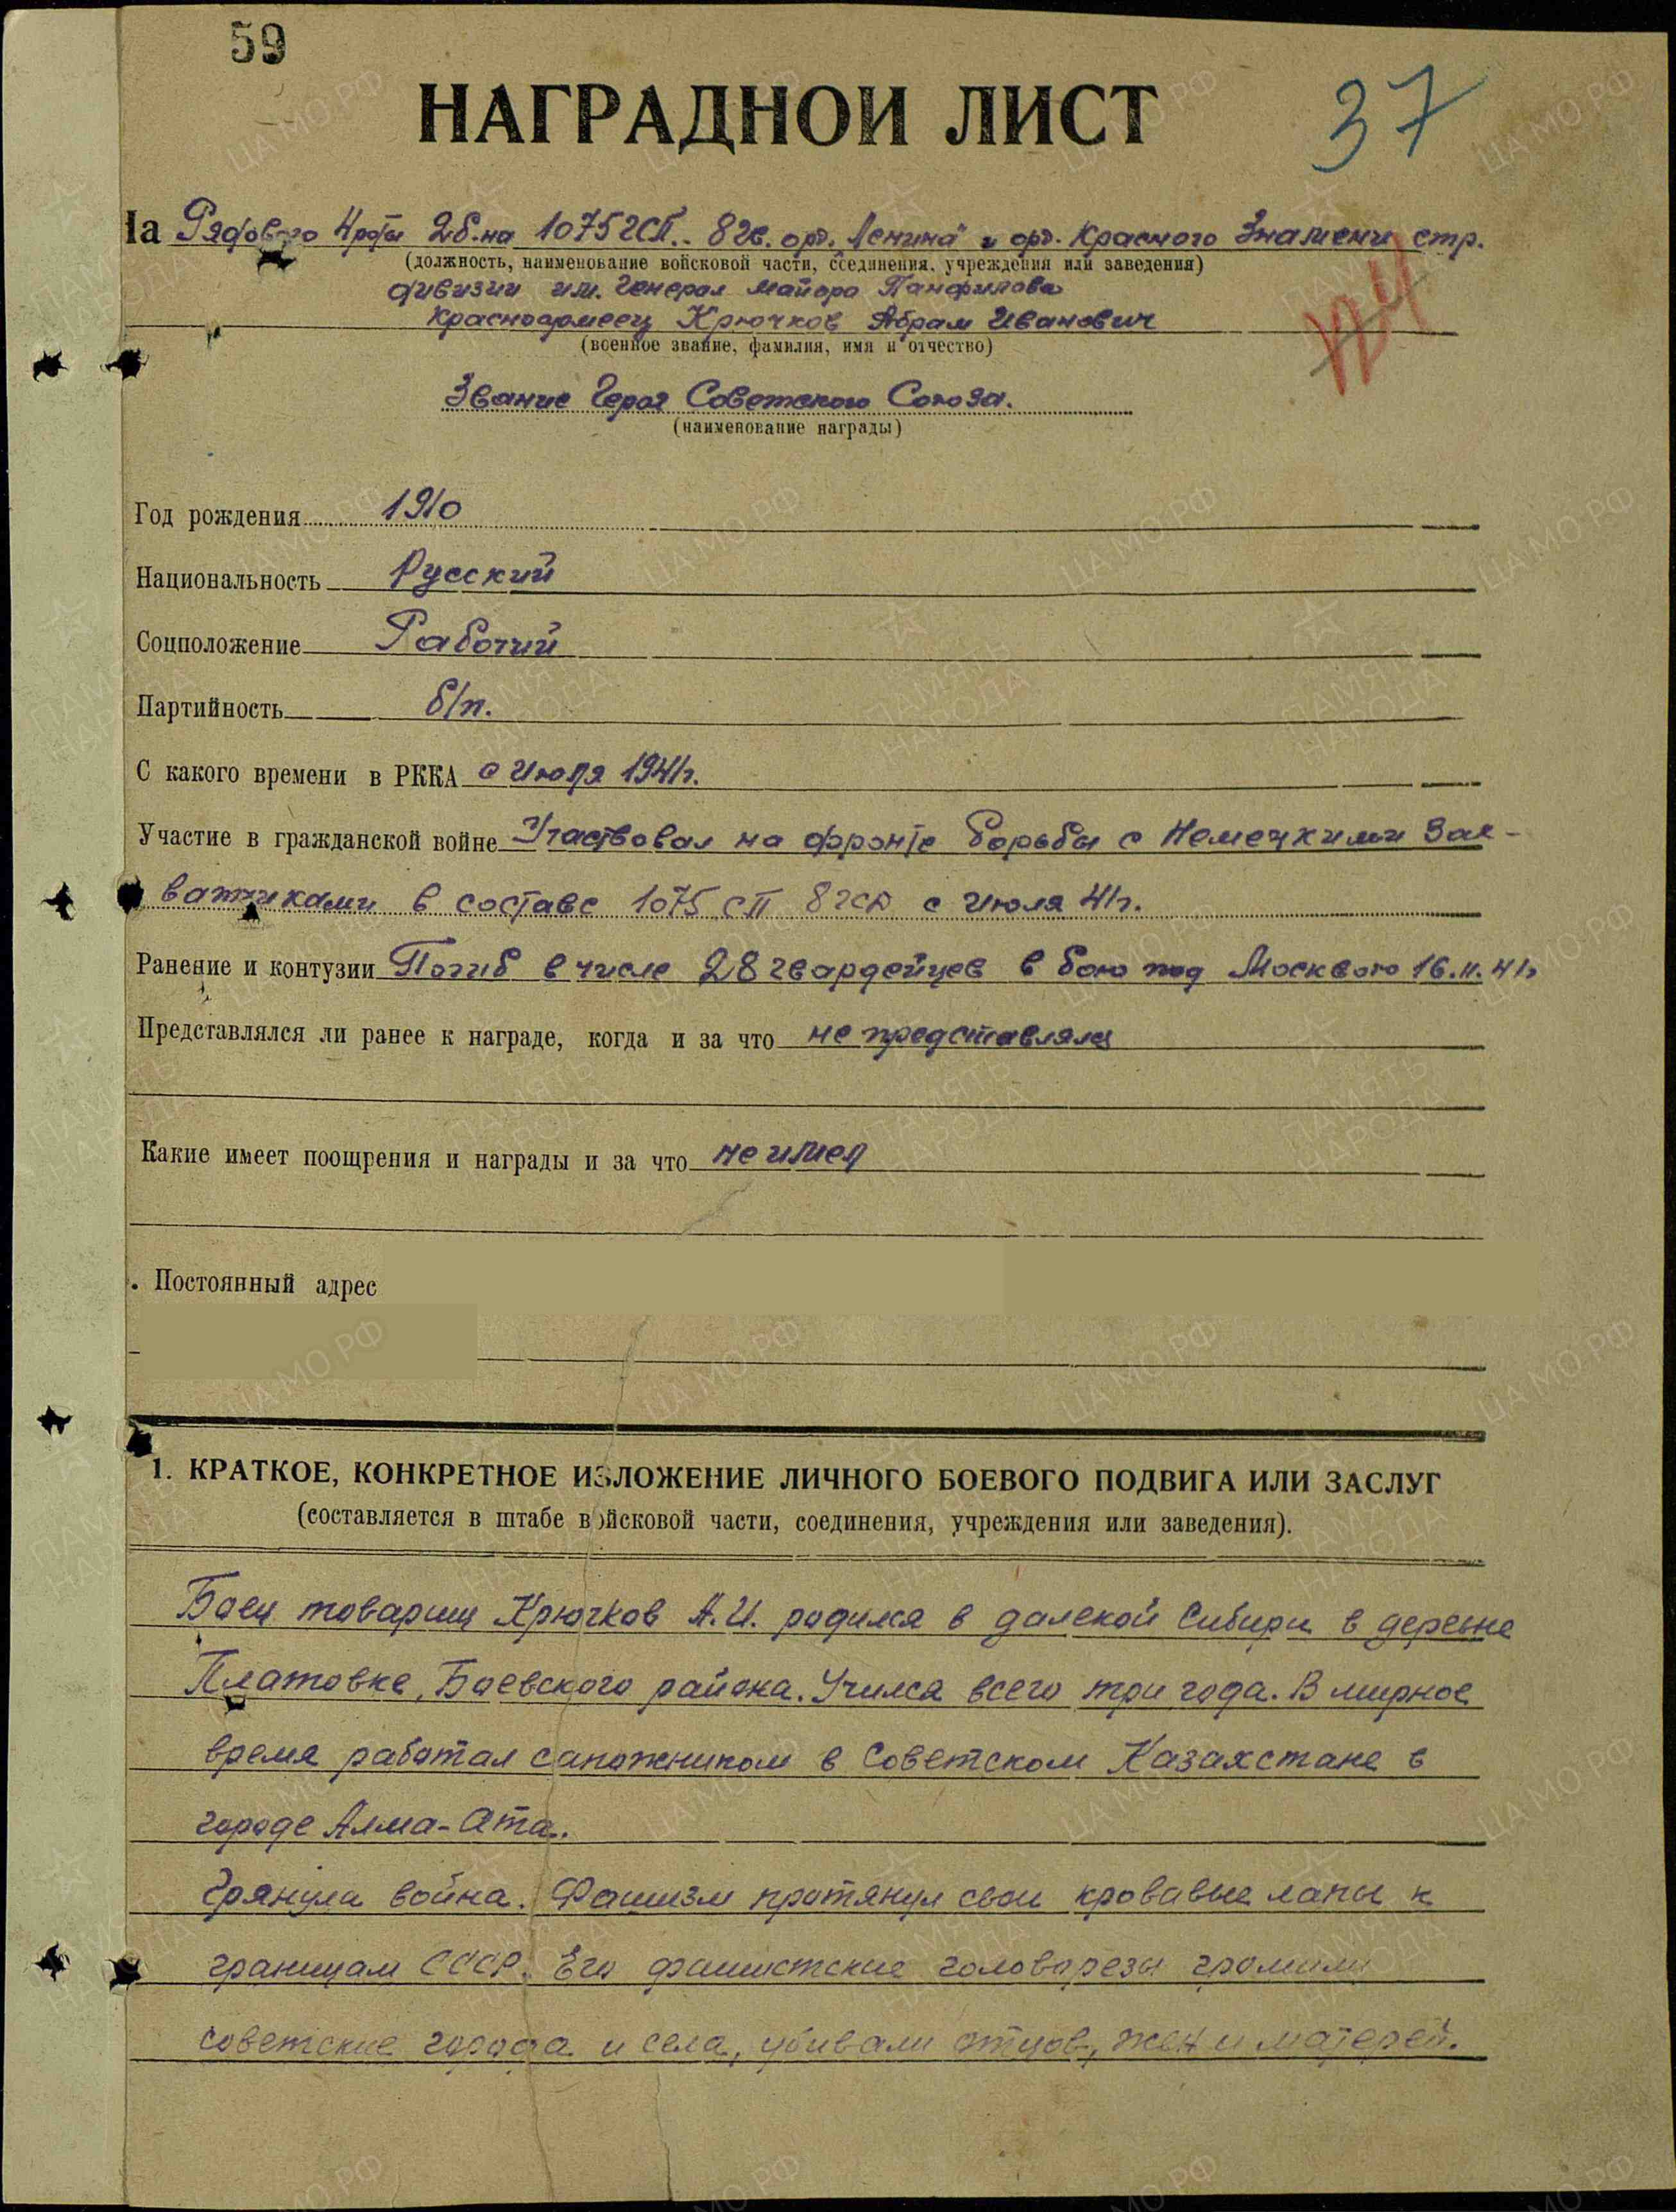 59
НАГРАДНОЙ ЛИСТ
37
На Рядового 4 роты 2 б-на 1075 гсп. 8 гв. орд. Ленина и орд. Красного Знамени стр.
(должность, наименование войсковой части, соединения, учреждения или заведения)
дивизии им. Генерал майора Панфилова
Красноармеец Крючков Абрам Иванович
(военное звание, фамилия, имя и отчество)
Звание Героя Советского Союза.
(наименование награды)
Год рождения 1910
Национальность Русский
Соцположение Рабочий
Партийность б/п.
С какого времени в РККА с Июля 1941г.
Участие в гражданской войне Участвовал на фронте борьбы с Немецкими зах-
ватчиками в составе 1075 сп 8 гсд с Июля 41г.
Ранение и контузии Погиб в числе 28 гвардейцев в бою под Москвою 16.11.41г
Представлялся ли ранее к награде, когда и за что не представлялся
Какие имеет поощрения и награды и за что не имел
. Постоянный адрес
1. КРАТКОЕ, КОНКРЕТНОЕ ИЗЛОЖЕНИЕ ЛИЧНОГО БОЕВОГО ПОДВИГА ИЛИ ЗАСЛУГ
(составляется в штабе войсковой части, соединения, учреждения или заведения).
Боец товарищ Крючков А.И. родился в далекой Сибири в деревне
Платовке, Баевского района. Учился всего три года. В мирное
время работал сапожником в Советском Казахстане в
городе Алма-Ата.
Грянула война. Фашизм протянул свои кровавые лапы к
границам СССР. Его фашистские головорезы громили
советские города и села, убивали отцов, жен и матерей.